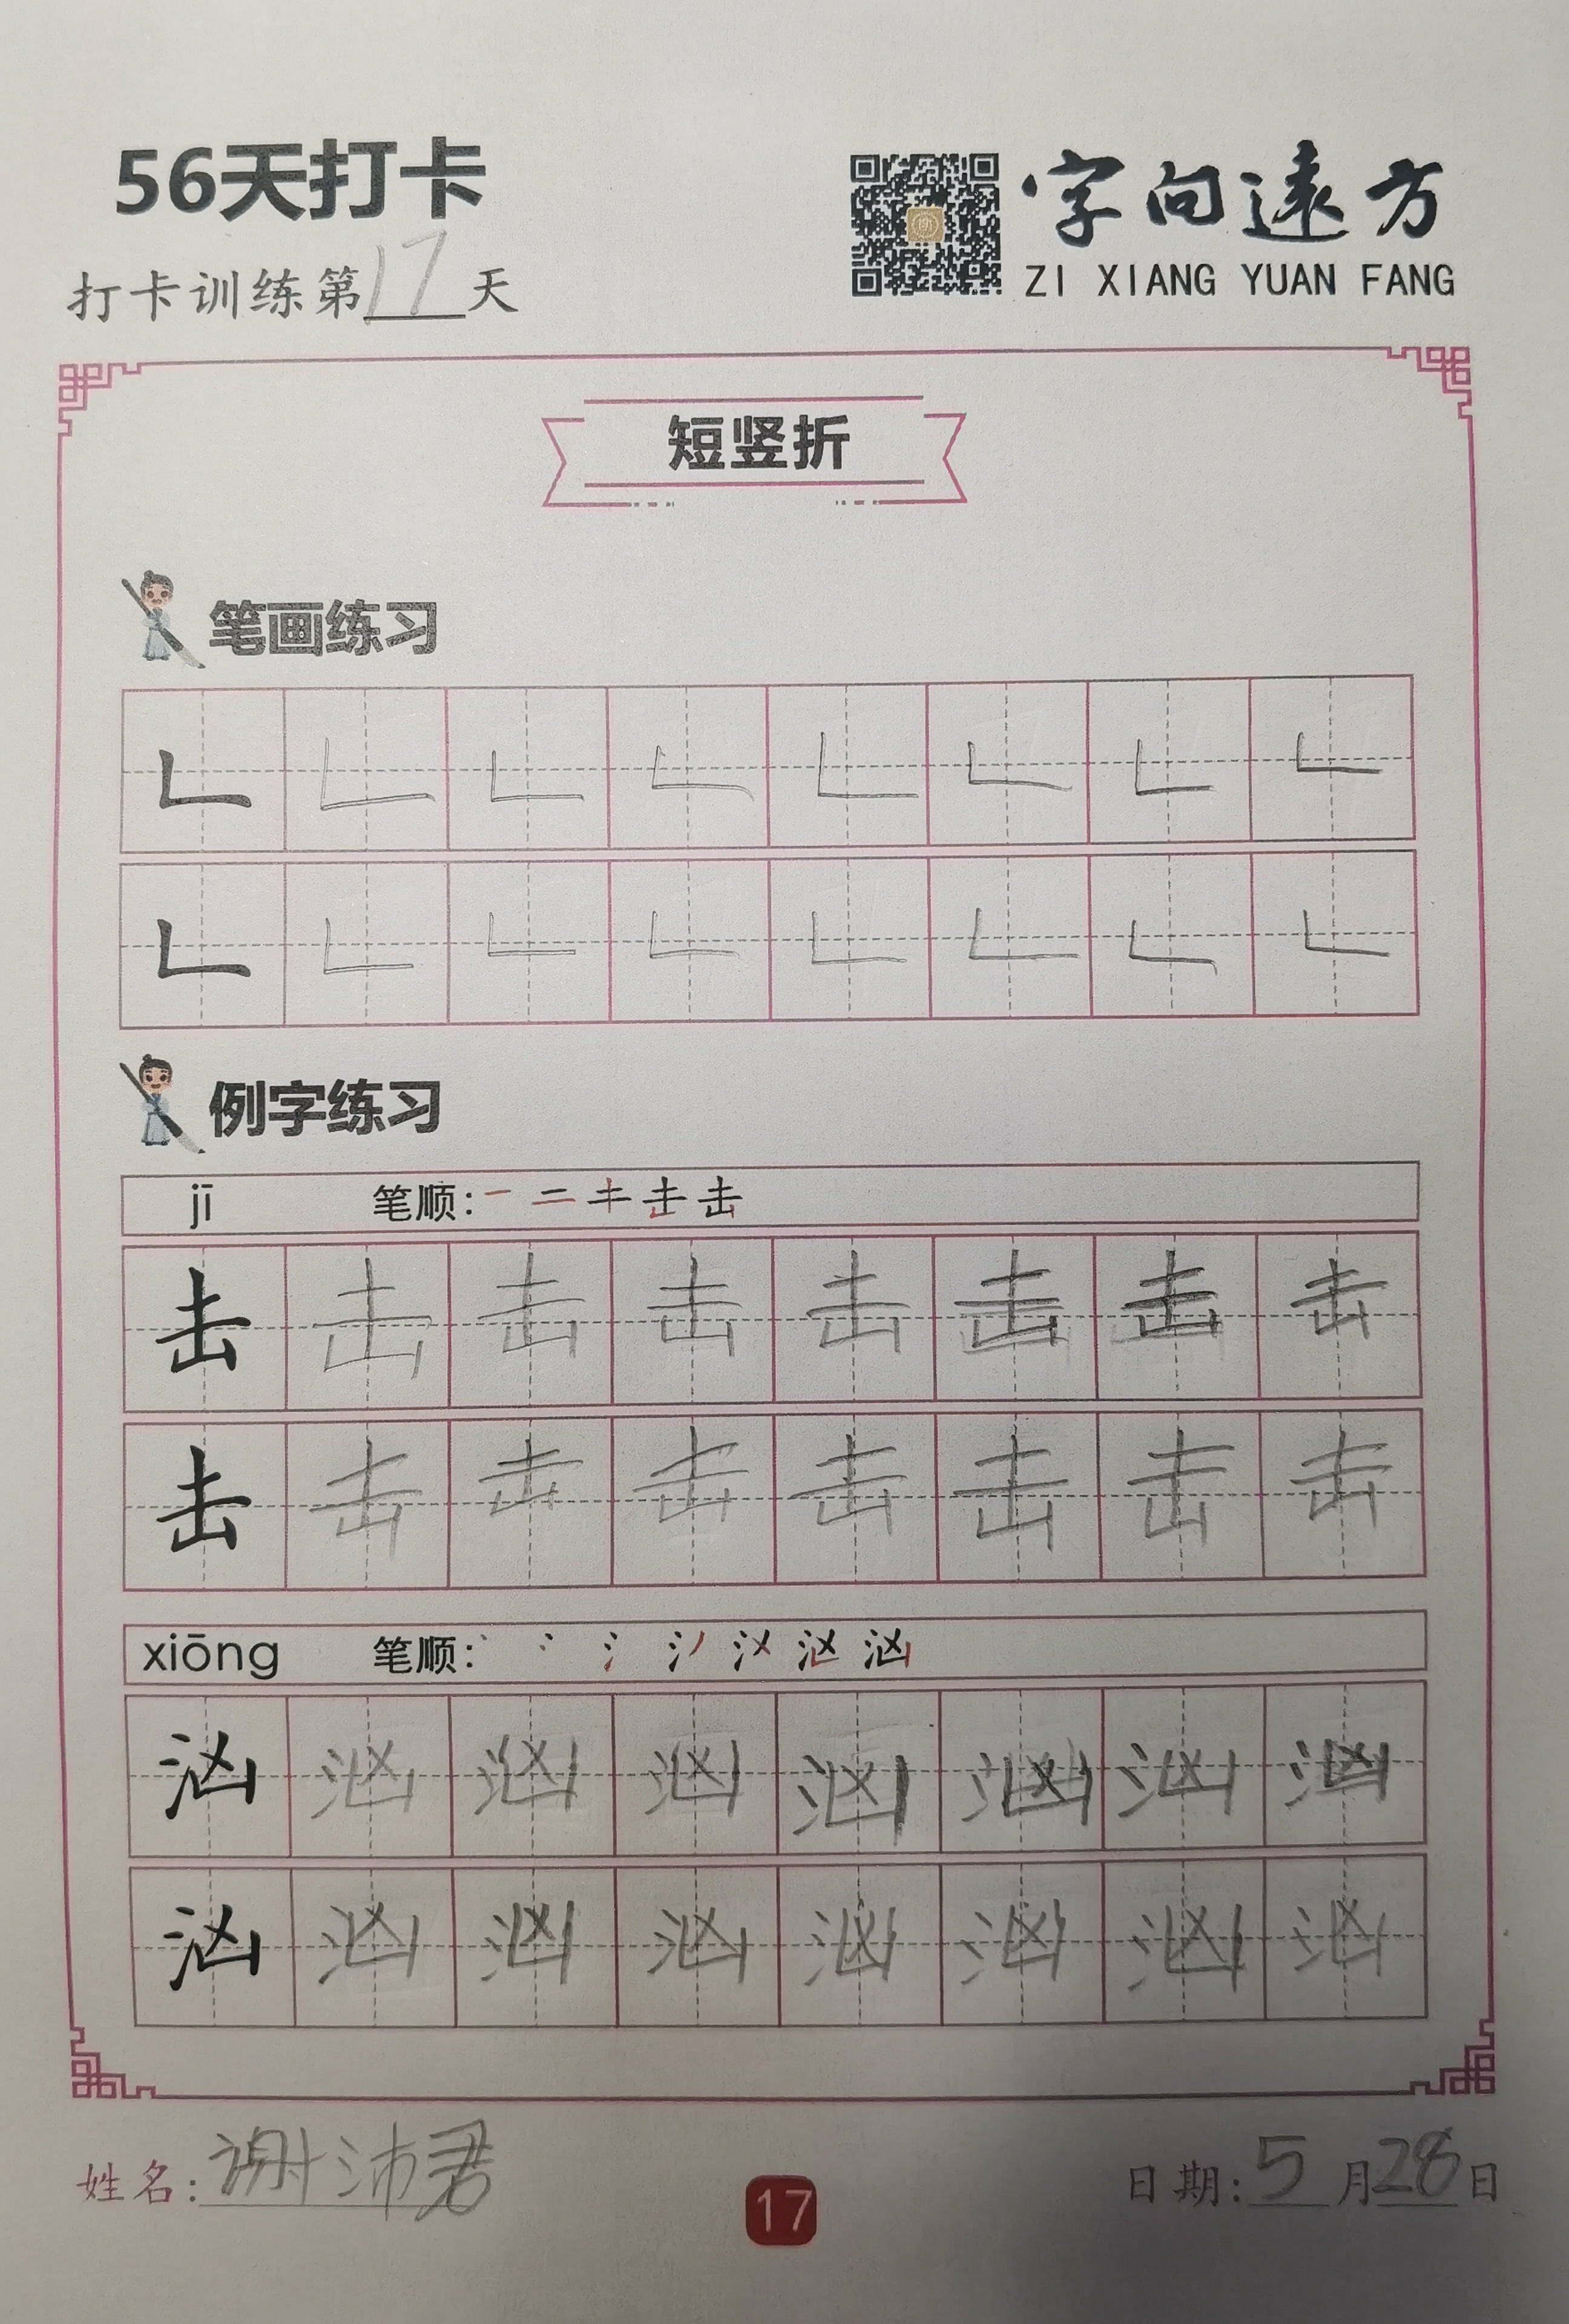 56天打卡
字向遠方
打卡训练第17天
ZI XIANG YUAN FANG
短竖折
笔画练习
例字练习
jī 笔顺:
击 击 击 击 击 击 击 击
击 击 击 击 击 击 击 击
xiōng 笔顺:
汹 汹 汹 汹 汹 汹 汹 汹
汹 汹 汹 汹 汹 汹 汹 汹
姓名:谢沛君
17
日期:5月28日